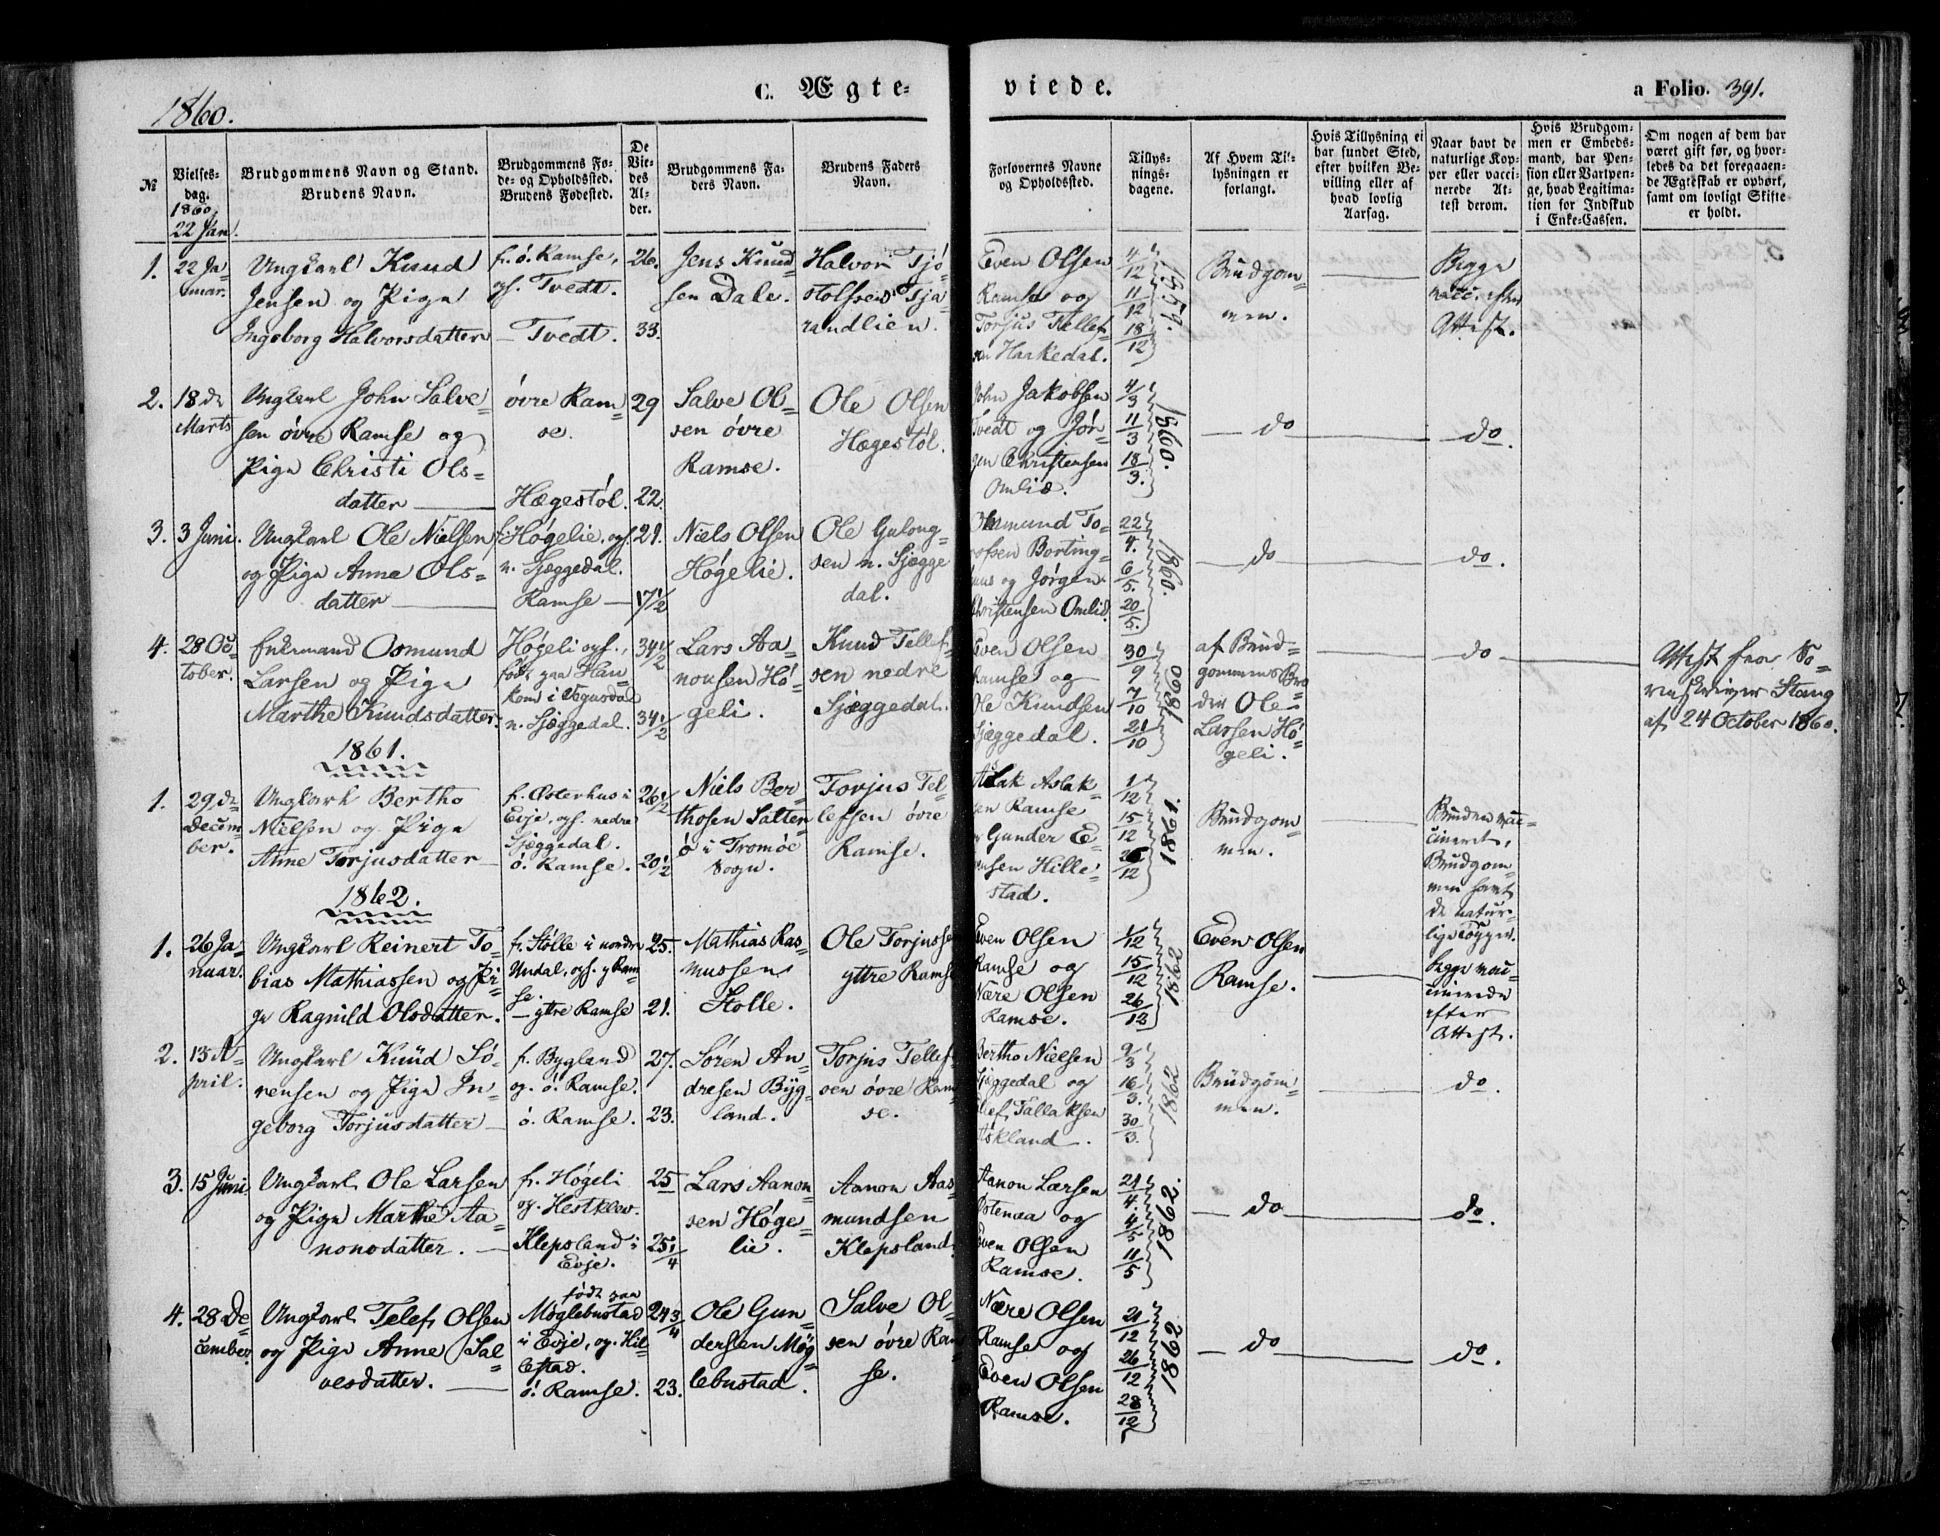 1860.
C. Ægte-
viede.
a Folio. 391.
№
Vielses-
dag.
1860,
22 Jan.
Brudgommens Navn og Stand.
Brudens Navn.
Brudgommens Fø-
de- og Opholdssted.
Brudens Fødested.
De
Vie-
des
Al-
der.
Brudgommens Fa-
ders Navn.
Brudens Faders
Navn.
Forlovernes Navne
og Opholdssted.
Tillys-
nings-
dagene.
Af Hvem Til-
lysningen er
forlangt.
Hvis Tillysning ei
har fundet Sted,
efter hvilken Be-
villing eller af
hvad lovlig
Aarsag.
Naar havt de
naturlige Kop-
per eller vacci-
nerede At-
test derom.
Hvis Brudgom-
men er Embeds-
mand, har Pen-
sion eller Vartpen-
ge, hvad Legitima-
tion for Indskud
i Enke-Cassen.
Om nogen af dem har
været gift før, og hvor-
ledes da det foregaaen-
de Ægteskab er ophørt,
samt om lovligt Skifte
er holdt.
1.
22 Ja-
nuar.
Ungkarl Knud
Jensen og Pige
Ingeborg Halvorsdatter
f. ö. Ramse,
og. Tvedt.
— Tvedt.
26.
33.
Jens Knud-
sen Dale.
Halvor Tjø-
stolfsen Tja-
randlien.
Even Olsen
Ramse og
Torjus Tellef-
sen Haakedal.
4/12
11/12
18/12
1859.
Brudgom-
men.
Begge
vacc. efter
Attest.
2.
18 de
Marts
Ungkarl John Salve-
sen övre Ramse og
Pige Christi Ols-
datter
övre Ram-
se.
Hægestöl.
29
22.
Salve Ol-
sen övre
Ramse.
Ole Olsen
Hægestöl.
John Jakobsen
Tvedt og Jör-
gen Christensen
Omlid.
4/3
11/3
18/3.
1860.
do
do.
3.
3 Juni.
Ungkarl Ole Nielsen
og Pige Anne Ols-
datter
f. Högelie, og.
n. Sjæggedal.
Ramse
21.
17 1/2
Niels Olsen
Högelie.
Ole Gulong-
sen n. Sjægge
dal.
mund To-
Jörgen
Christensen Omlid.
22/4.
6/5.
20/5.
1860.
do
do.
4.
28 Oc-
tober.
Enkemand Osmund
Larsen og Pige
Marthe Knudsdatter.
Högeli og.,
född paa Hau-
kom i Vegusdal
n. Sjæggedal.
34 1/2
34 1/2
Lars Aa-
nonsen Hö-
geli.
Knud Tellef-
sen nedre
Sjæggedal.
Even Olsen
Ramse og
Ole Knudsen
Sjæggedal.
30/9
7/10
21/10
1860
af Brud-
gommens Bro
der Ole
Larsen Hö-
geli.
do
Attest fra So-
renskriver Stang
af 24 October 1860.
1861.
1.
29 de
Decem-
ber.
Ungkarl Bertho
Nielsen og Pige
Anne Torjusdatter
f. Østerhus i
Evje, og. nedre
Sjæggedal.
ö. Ramse.
26 1/2
20 1/2
Niels Ber-
thosen Salter-
ö i Tromöe
Sogn.
Torjus Tel-
lefsen övre
Ramse.
Aslak Aslak-
sen Ramse
Gunder E-
vensen Hille-
stad.
1/12
15/12
/12
1861.
Brudgom-
men.
Bruden vac-
cineret,
Brudgom-
men havt
de natur-
lige Kopper.
1862.
1.
26 Ja-
nuar.
Ungkarl Reinert To-
bias Mathiassen og Pi-
ge Ragnild Olsdatter.
f. Stölle i nordre
Undal, og. y. Ram-
se.
— yttre Ramse
25.
21.
Mathias Ras-
mussen
Stolle.
Ole Torjussen
yttre Ramse
Even Olsen
Ramse og
Nære Olsen
Ramse.
1/12
15/12
26/12
1862
Even Olsen
Ramse.
begge vac-
cinerede
efter
Attest.
2.
13 A-
pril.
Ungkarl Knud Sö-
rensen og Pige In-
geborg Torjusdatter
f. Bygland
og. ö. Ramse.
ö. Ramse.
27.
23.
Sören An-
dresen Byg-
land.
Torjus Tellef-
sen övre Ram-
se.
Bertho Nielsen
Sjæggedal og
Tallaksen
Askland.
9/3
16/3.
30/3.
1862
Brudgom-
men.
do.
3.
15 Juni
Ungkarl Ole Larsen
og Pige Marthe Aa-
nonsdatter.
f. Högeli
og. Hestklev.
Klepsland i
Evje.
25
25 1/4
Lars Aanon-
sen Höge-
lie.
Aanon Aas-
mundsen
Klepsland.
Aanon Larsen
Ostenaa og
Even Olsen
Ramse.
21/4.
4/5
11/5
1862.
do
do.
4.
28 De-
cember.
Ungkarl Telef Olsen
og Pige Anne Sal-
vesdatter.
född paa
Møglebustad
i Evje, og. Hil-
lestad.
ö. Ramse.
24 3/4
23.
Ole Gun-
dersen Møg-
lebustad.
Salve Ol-
sen övre Ram-
se.
Nære Olsen
Ramse og
Even Olsen
Ramse.
21/12
26/12
28/12
1862
do
do.